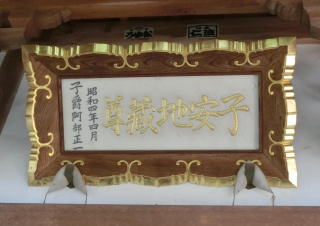 子安地蔵尊
昭和四年四月
子爵阿部正一